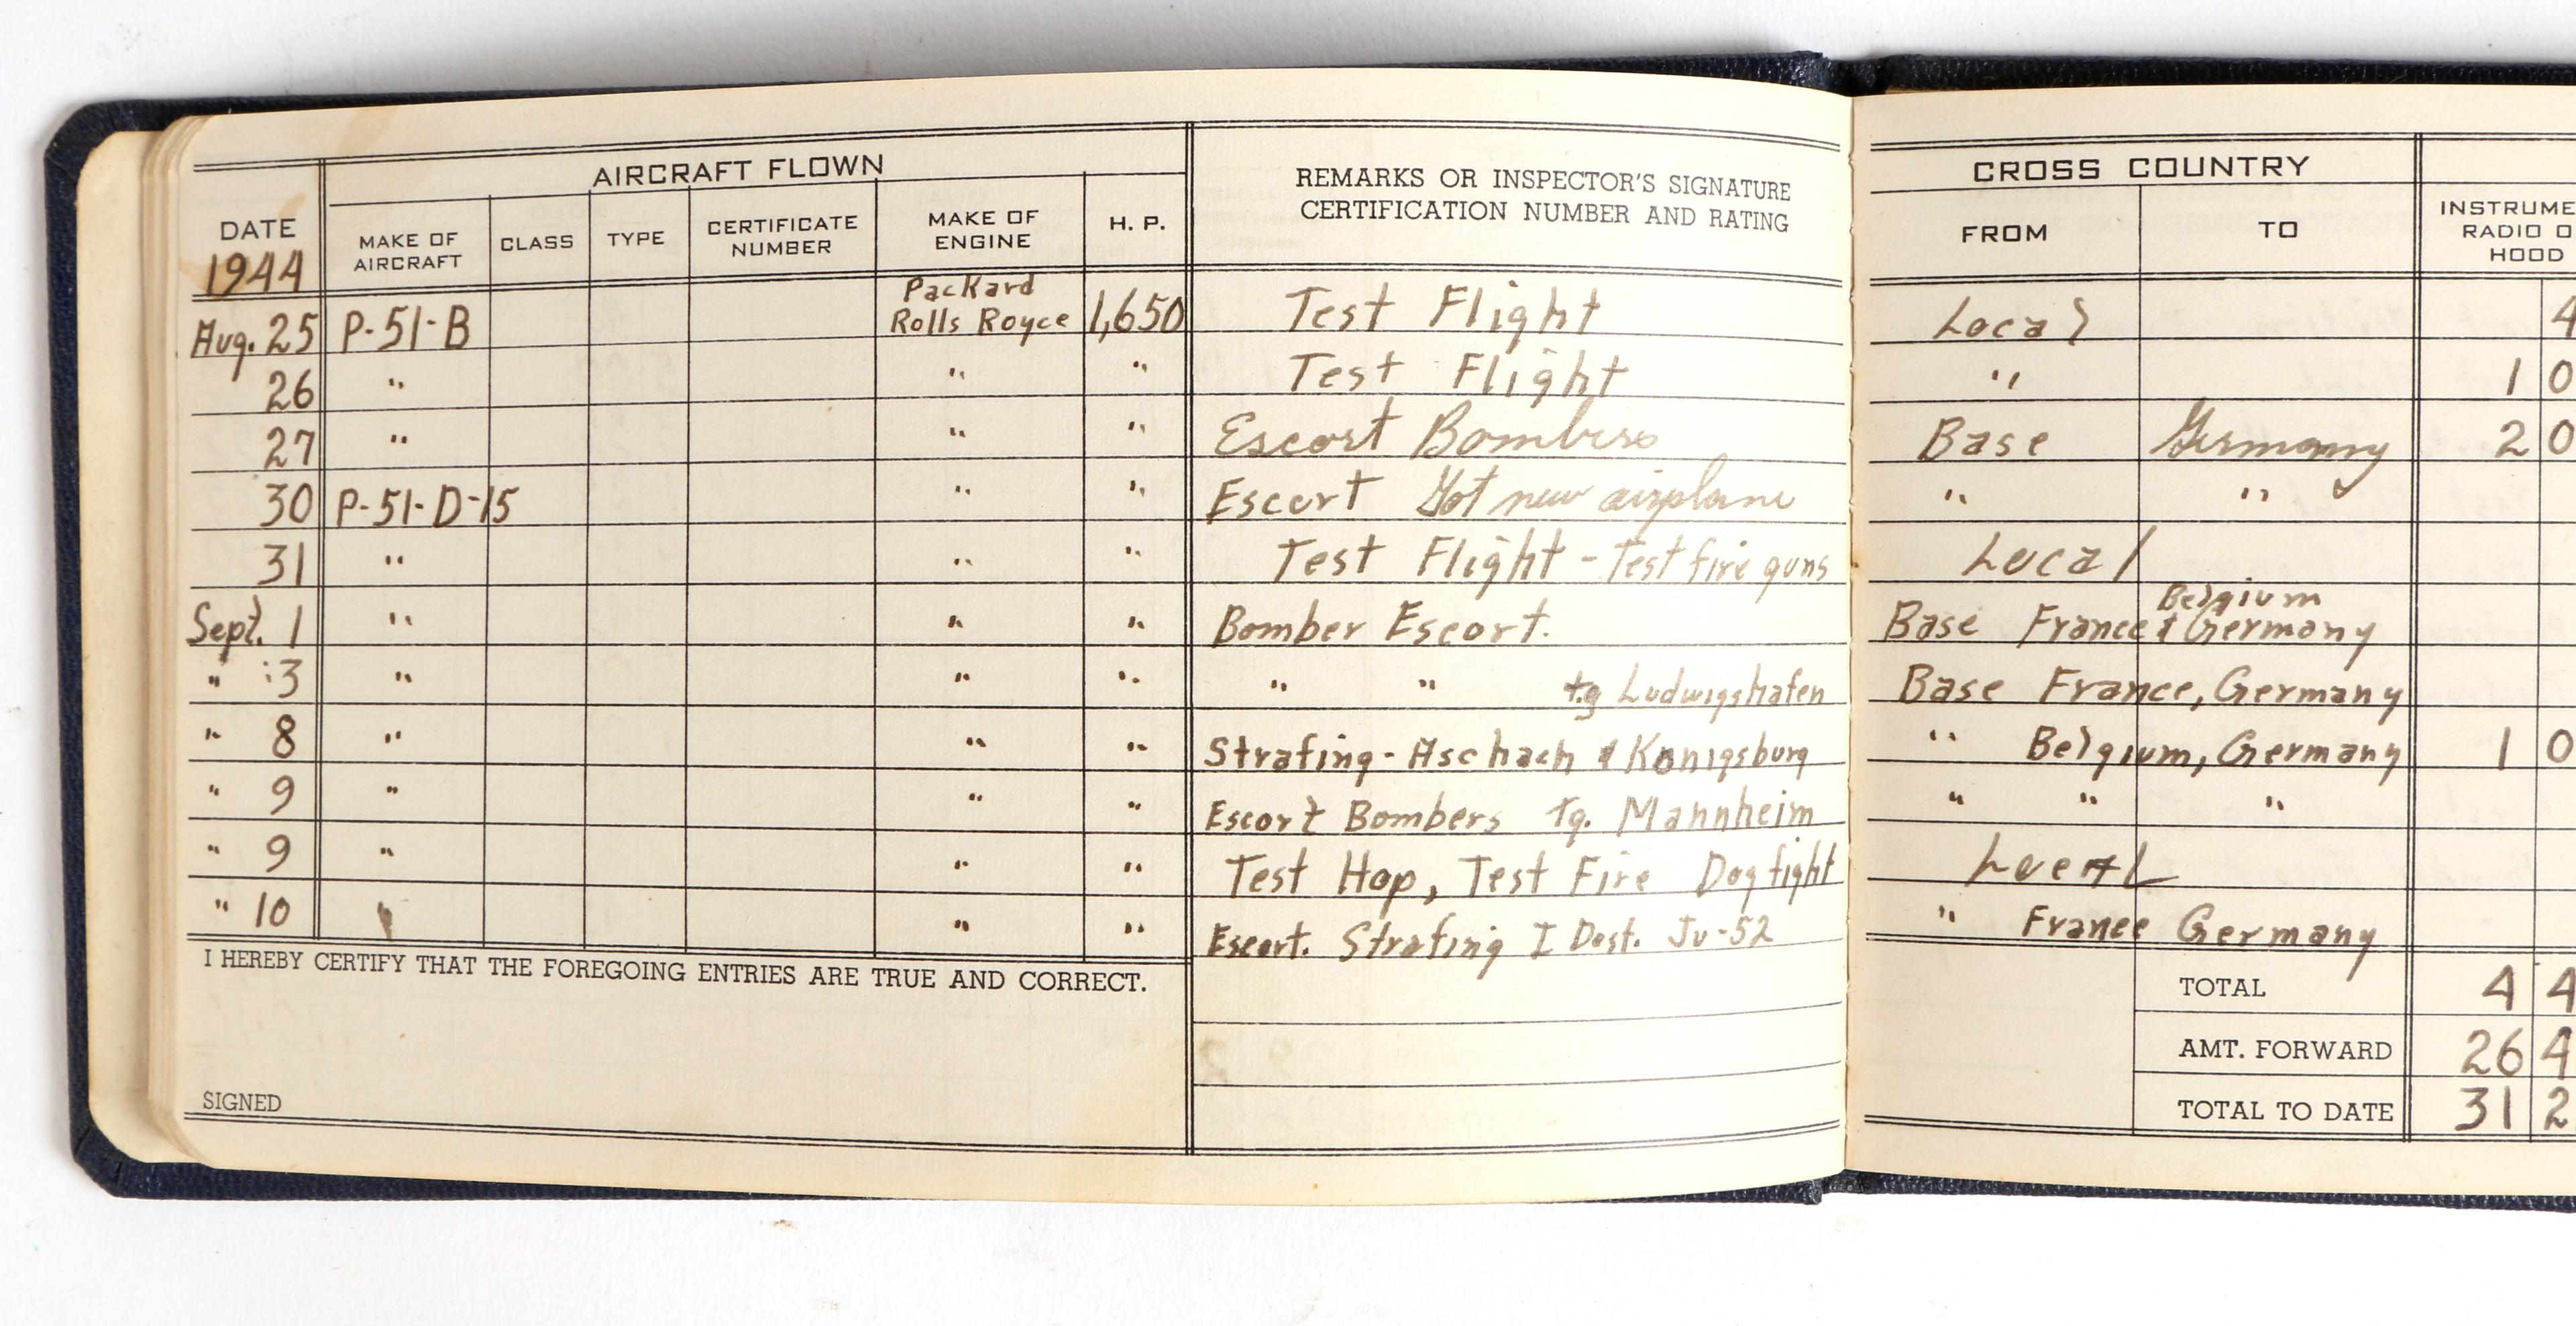 AIRCRAFT FLOWN
REMARKS OR INSPECTOR'S SIGNATURE
CERTIFICATION NUMBER AND RATING
CROSS COUNTRY
DATE
1944
MAKE OF
AIRCRAFT
CLASS
TYPE
CERTIFICATE
NUMBER
MAKE OF
ENGINE
H. P.
FROM
TO
INSTRUME
RADIO O
HOOD
Aug. 25 P-51-B Packard Rolls Royce 1,650 Test Flight Local 4
26 " " " Test Flight " 1 0
27 " " " Escort Bombers Base Germany 2 0
30 P-51-D-15 " " Escort Got new airplane " "
31 " " " Test Flight - Test fire guns Local
Sept. 1 " " " Bomber Escort. Base France & Belgium Germany
" 3 " " " " " tg Ludwigshafen Base France, Germany
" 8 " " " Strafing - Aschach & Konigsburg " Belgium, Germany 1 0
" 9 " " " Escort Bombers tg. Mannheim " " "
" 9 " " " Test Hop, Test Fire Dogfight Local
" 10 " " " Escort. Strafing I Dest. Ju-52 " France Germany
I HEREBY CERTIFY THAT THE FOREGOING ENTRIES ARE TRUE AND CORRECT.
SIGNED
TOTAL 4 4
AMT. FORWARD 26 4
TOTAL TO DATE 31 2